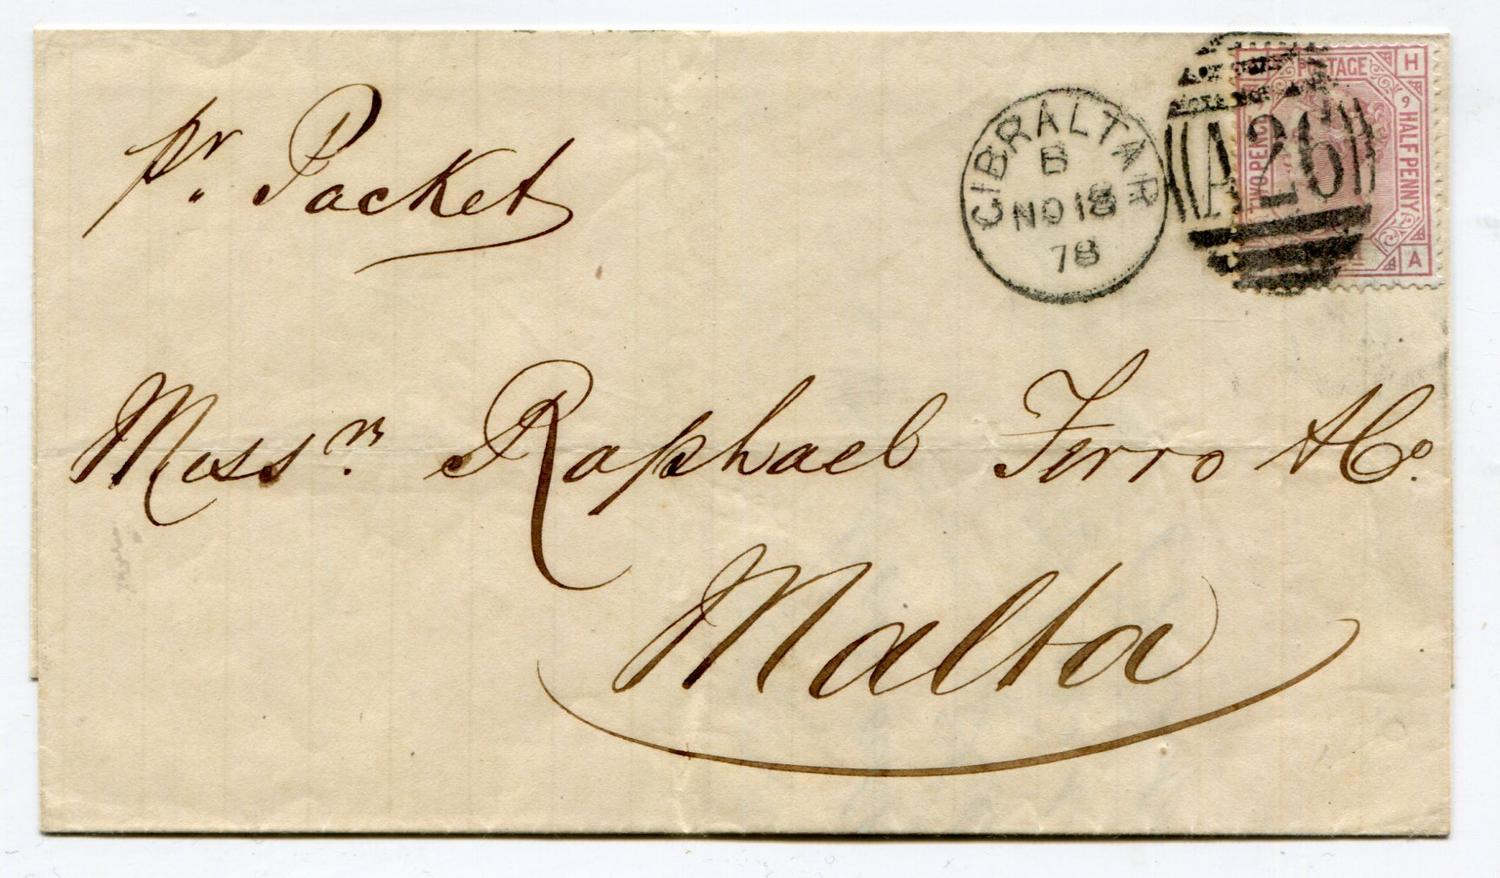 pr. Packet
GIBRALTAR
B
NO 18
78
A26
POSTAGE
TWO PENCE
HALFPENNY
H
9
A
Messrs. Raphael Ferro & Co.
Malta